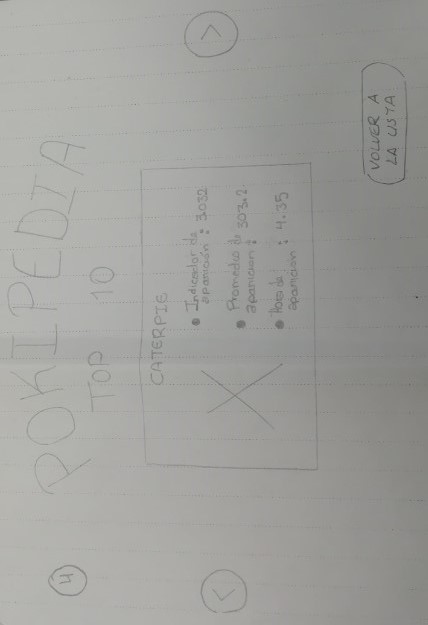 4
POKIPEDIA
TOP 10
CATERPIE
• Indicador de
aparición : 3.032
• Promedio de
aparición : 303.2
• Hora de
aparición : 4.35
<
>
VOLVER A
LA LISTA